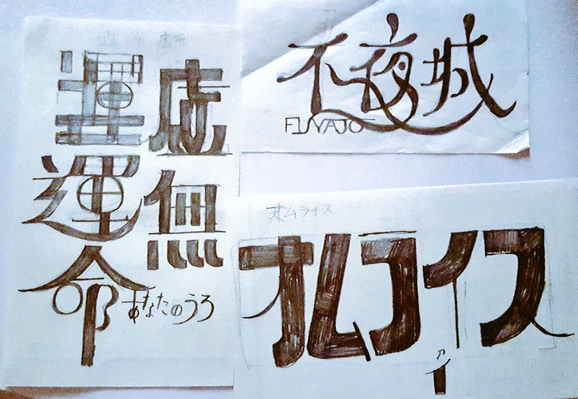 虚無
運運命
あなたのうろ
不夜城
FUYAJO
オムライス
オムライス